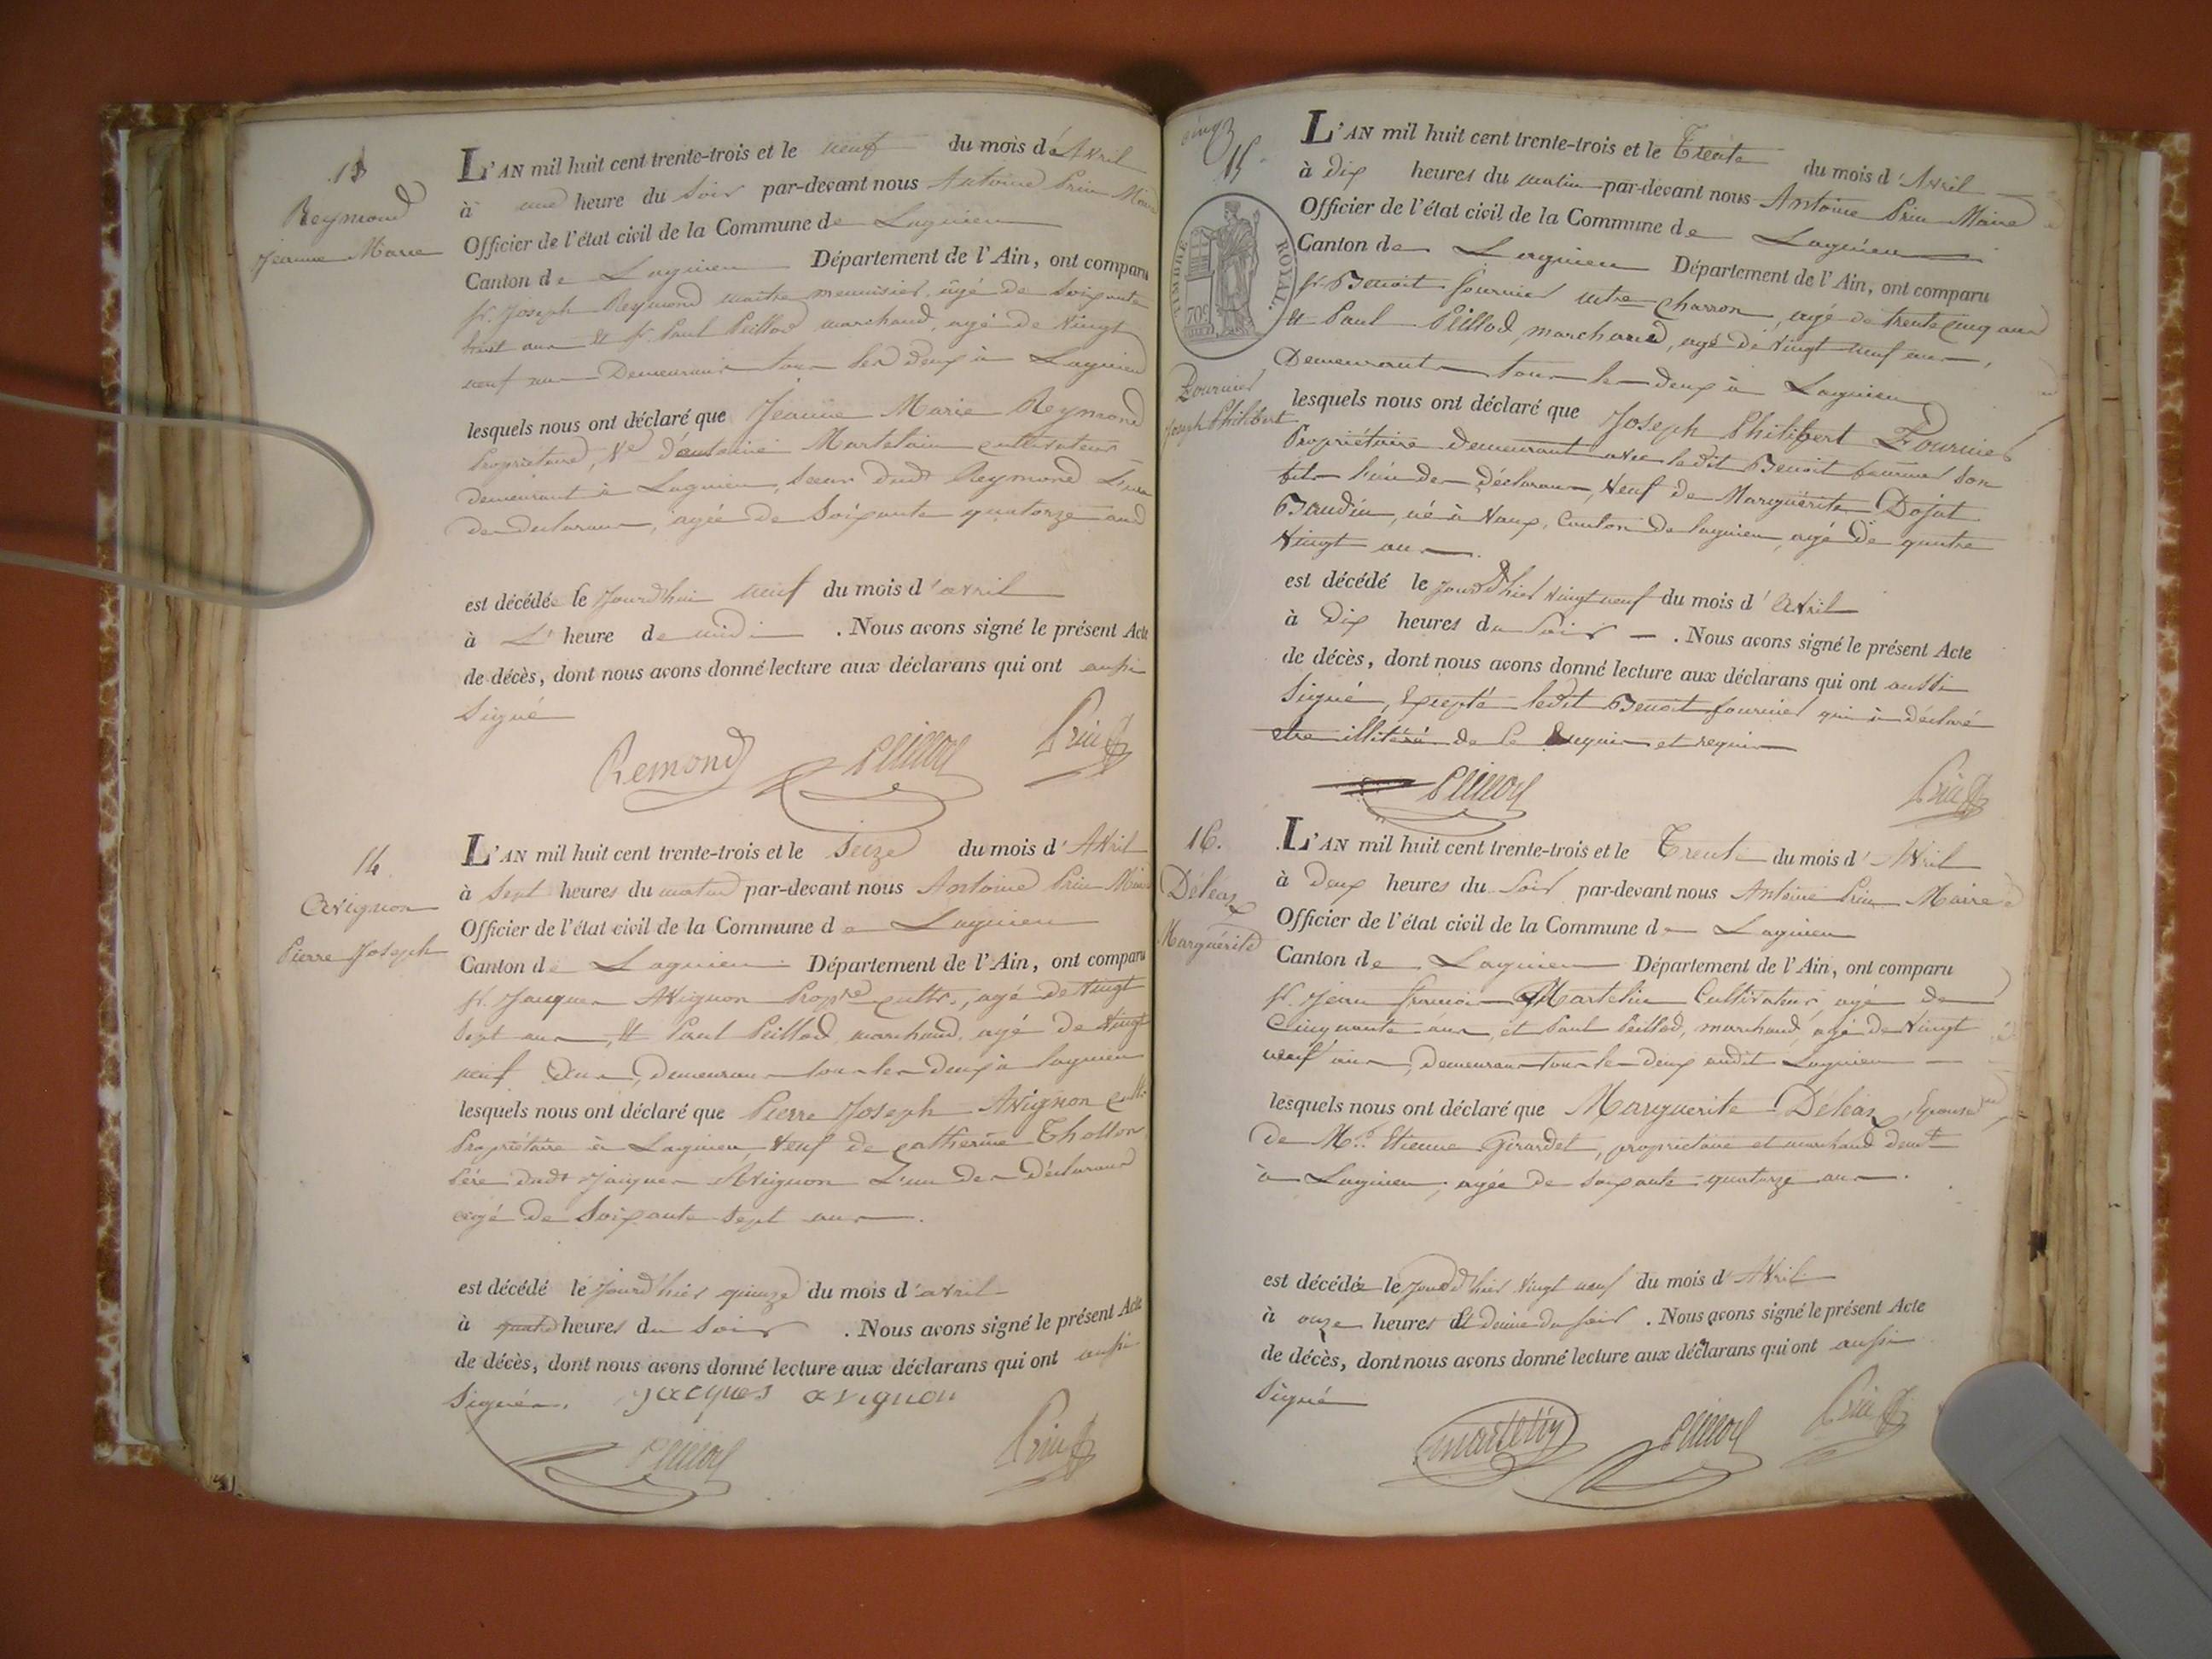 13
Reymond
Jeanne Marie
L'AN mil huit cent trente-trois et le neuf du mois d'Avril
à une heure du Soir par-devant nous Antoine Prin Maire
Officier de l'état civil de la Commune de Lagnieu
Canton de Lagnieu Département de l'Ain, ont comparu
sr. Joseph Reymond maitre menuisier, âgé de Soixante
huit ans et sr. Paul Peillod marchand, agé de Vingt
neuf ans Demeurans tous les deux à Lagnieu
lesquels nous ont déclaré que Jeanne Marie Reymond
Propriétaire, Ve d'antoine Martelain cultivateur
demeurant à Lagnieu, Soeur dudt Reymond L'un
des declarans, agée de Soixante quatorze ans
est décédée le Jourd'hui neuf du mois d'avril
à L' heure de midi . Nous avons signé le présent Acte
de décès, dont nous avons donné lecture aux déclarans qui ont aussi
Signé
Remond Peillod Prin
14
Avignon
Pierre Joseph
L'AN mil huit cent trente-trois et le Seize du mois d'Avril
à Sept heures du matin par-devant nous Antoine Prin Maire
Officier de l'état civil de la Commune de Lagnieu
Canton de Lagnieu Département de l'Ain, ont comparu
sr. Jacques Avignon Propre cultr., agé de Vingt
Sept ans, et Paul Peillod, marchand, agé de Vingt
neuf ans, demeurans tous les deux à Lagnieu
lesquels nous ont déclaré que Pierre Joseph Avignon
Propriétaire à Lagnieu, Veuf de Catherine Thollon
Père dudt Jacques Avignon L'un des déclarans
agé de Soixante Sept ans.
est décédé le Jourd'hier quinze du mois d'avril
à heures du Soir . Nous avons signé le présent Acte
de décès, dont nous avons donné lecture aux déclarans qui ont aussi
Signé. jacques avignon
Peillod Prin
15
TIMBRE ROYAL.
70c
Fournier
Joseph Philibert
L'AN mil huit cent trente-trois et le Trente du mois d'Avril
à Dix heures du matin par-devant nous Antoine Prin Maire
Officier de l'état civil de la Commune de Lagnieu
Canton de Lagnieu Département de l'Ain, ont comparu
sr. Benoit fournier mtre Charron, agé de trente cinq ans
et Paul Peillod, marchand, agé de Vingt neuf ans,
Demeurants tous les deux à Lagnieu
lesquels nous ont déclaré que Joseph Philibert Fournier
Propriétaire demeurant avec ledit Benoit fournier Son
fils l'un des déclarans, Veuf de Marguérite Dojat
Baudin, né à Vaux, Canton de Lagnieu, agé de quatre
Vingt ans.
est décédé le jourd'hier Vingt neuf du mois d'Avril
à Dix heures du Soir . Nous avons signé le présent Acte
de décès, dont nous avons donné lecture aux déclarans qui ont aussi
Signé, Excepté ledit Benoit fournier qui à déclaré
etre illitéré de ce enquis et requis
Peillod Prin
16.
Déléaz
Marguérite
L'AN mil huit cent trente-trois et le Trente du mois d'Avril
à Deux heures du Soir par-devant nous Antoine Prin Maire
Officier de l'état civil de la Commune de Lagnieu
Canton de Lagnieu Département de l'Ain, ont comparu
sr. Jean françois Martelin Cultivateur, agé de
Cinquante ans, et Paul Peillod, marchand, agé de Vingt
neuf ans, demeurans tous les deux audit Lagnieu
lesquels nous ont déclaré que Marguerite Déléaz, Epouse
de Mr. Etienne Girardet, propriétaire et marchand demt
à Lagnieu, agée de Soixante quatorze ans.
est décédée le Jourd'hier Vingt neuf du mois d'Avril
à onze heures et demie du soir . Nous avons signé le présent Acte
de décès, dont nous avons donné lecture aux déclarans qui ont aussi
Signé
martelin Peillod Prin